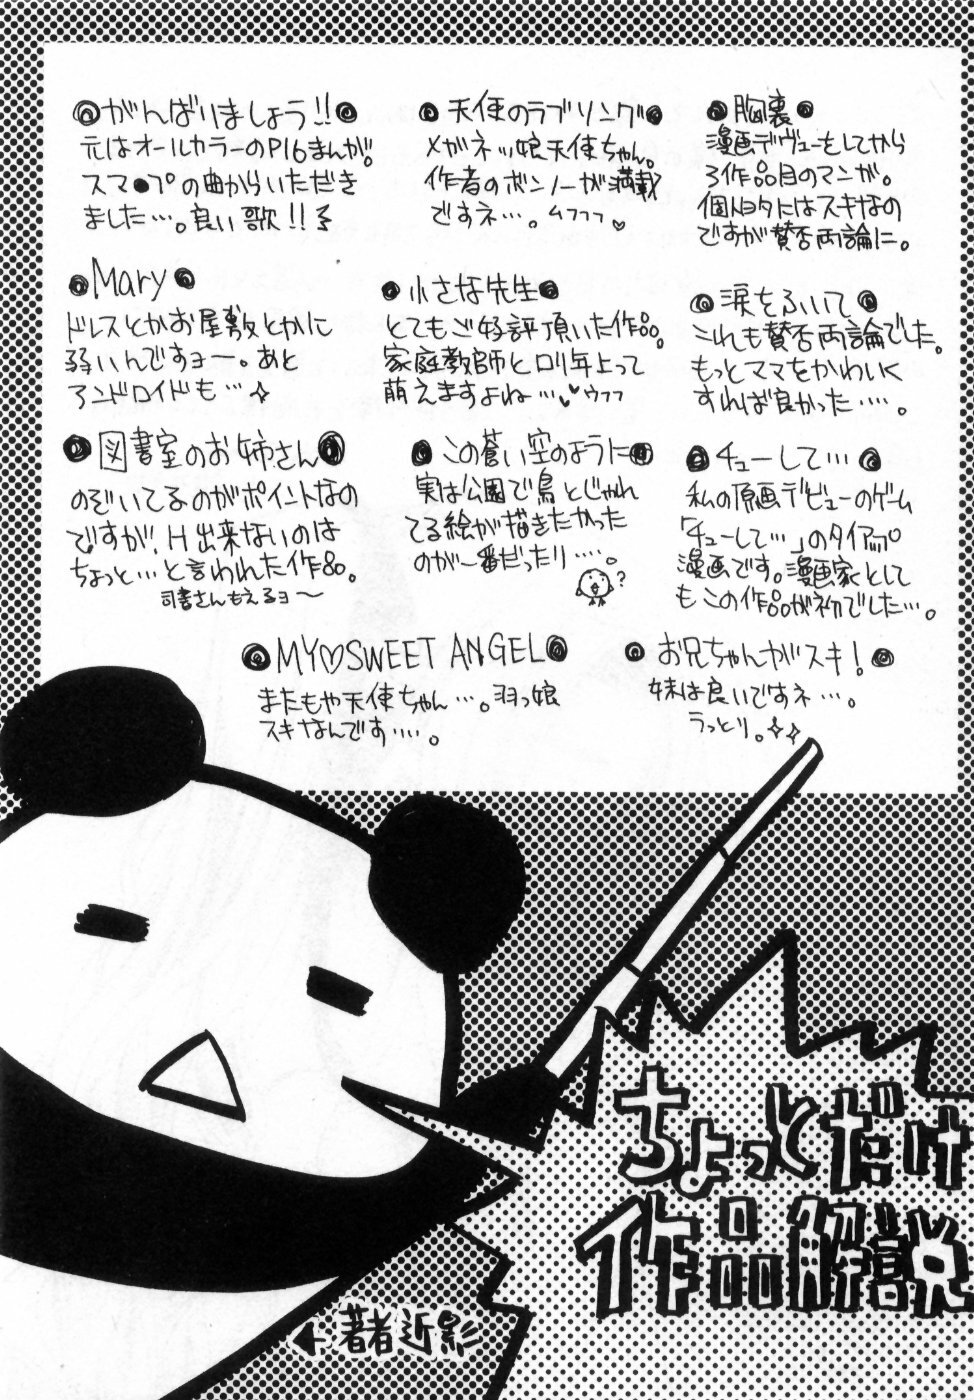 胸裏
漫画デヴューをしてから
3作品目のマンガ。
個人的にはスキなの
ですが賛否両論に。
天使のラブソング
メガネッ娘天使ちゃん。
作者のボンノーが満載
ですネ…。ムフフフ♡
がんばりましょう!!
元はオールカラーのP16まんが。
スマ●プの曲からいただき
ました…。良い歌!!
涙をふいて
これも賛否両論でした。
もっとママをかわいく
すれば良かった…。
小さな先生
とてもご好評頂いた作品。
家庭教師とロリ年上って
萌えますよね…♡ウフフ
Mary
ドレスとかお屋敷とかに
弱いんですヨー。あと
アンドロイドも…☆
チューして…
私の原画デビューのゲーム
「チューして…」のタイアップ
漫画です。漫画家として
もこの作品が初でした…。
この蒼い空のように
実は公園で鳥とじゃれ
てる絵が描きたかった
のが一番だったり…。
?
図書室のお姉さん
のぞいてるのがポイントなの
ですが、H出来ないのは
ちょっと…と言われた作品。
司書さんもえるヨ～
お兄ちゃんがスキ!
妹は良いですネ…。
うっとり。
MY♡SWEET ANGEL
またもや天使ちゃん…。羽っ娘
スキなんです…。
ちょっとだけ
作品解説
←著者近影